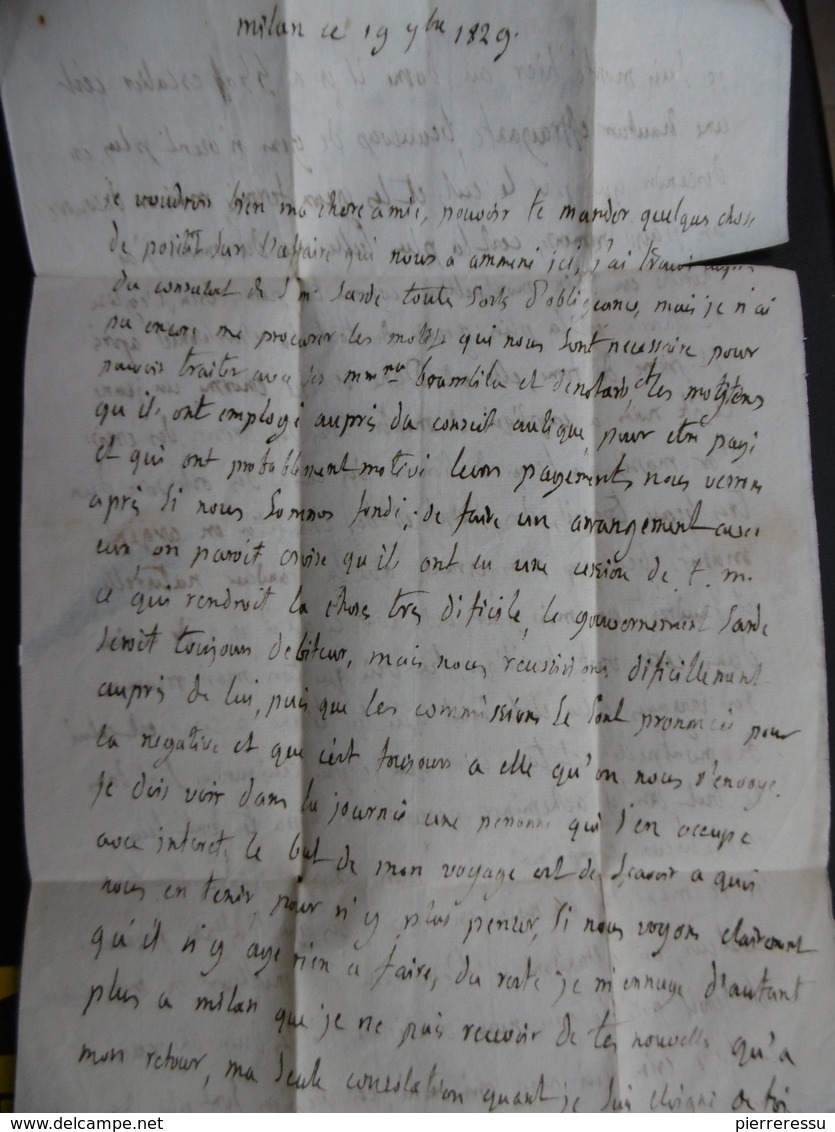 milan ce 19 7bre 1829.
je voudrois bien ma chere amie, pouvoir te mander quelque chose
de positif sur l'affaire qui nous a ammené ici, j'ai trouvé auprès
du consulat de S. M. Sarde toute sorte d'obligeance, mais je n'ai
pu encore me procurer les motifs qui nous sont necessaire pour
pouvoir traiter avec les brambilla et denotaris, et les moyens
qu'ils ont employé auprès du conseil aulique, pour etre payé
et qui ont probablement motivé leurs payements nous verrons
après si nous sommes fondé, de faire un arrangement avec
eux, on paroit croire qu'ils ont eu une cession de t. m.
ce qui rendroit la chose tres dificile, le gouvernement Sarde
seroit toujours debiteur, mais nous reussirions dificillement
auprès de lui, puis que les commissions se sont prononcée pour
la negative et que c'est toujours a elle qu'on nous r'envoye.
je dois voir dans la journée une personne qui s'en occupe
avec interet, le but de mon voyage est de sçavoir a quoi
nous en tenir, pour n'y plus penser, si nous voyons clairement
qu'il n'y aye rien a faire, du reste je m'ennuye d'autant
plus a milan que je ne puis recevoir de tes nouvelles qu'a
mon retour, ma seule consolation quant je suis eloigné de toi
pierreressu